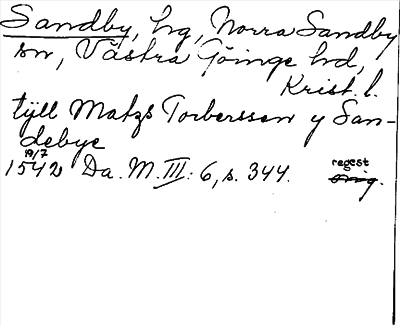 Sandby, hg, Norra Sandby
sn, Västra Göinge hd,
Krist. l.
tijll Matzs Torberssen y San-
debye
19/7
1542 Da. M. III: 6, s. 344.
regest
orig.